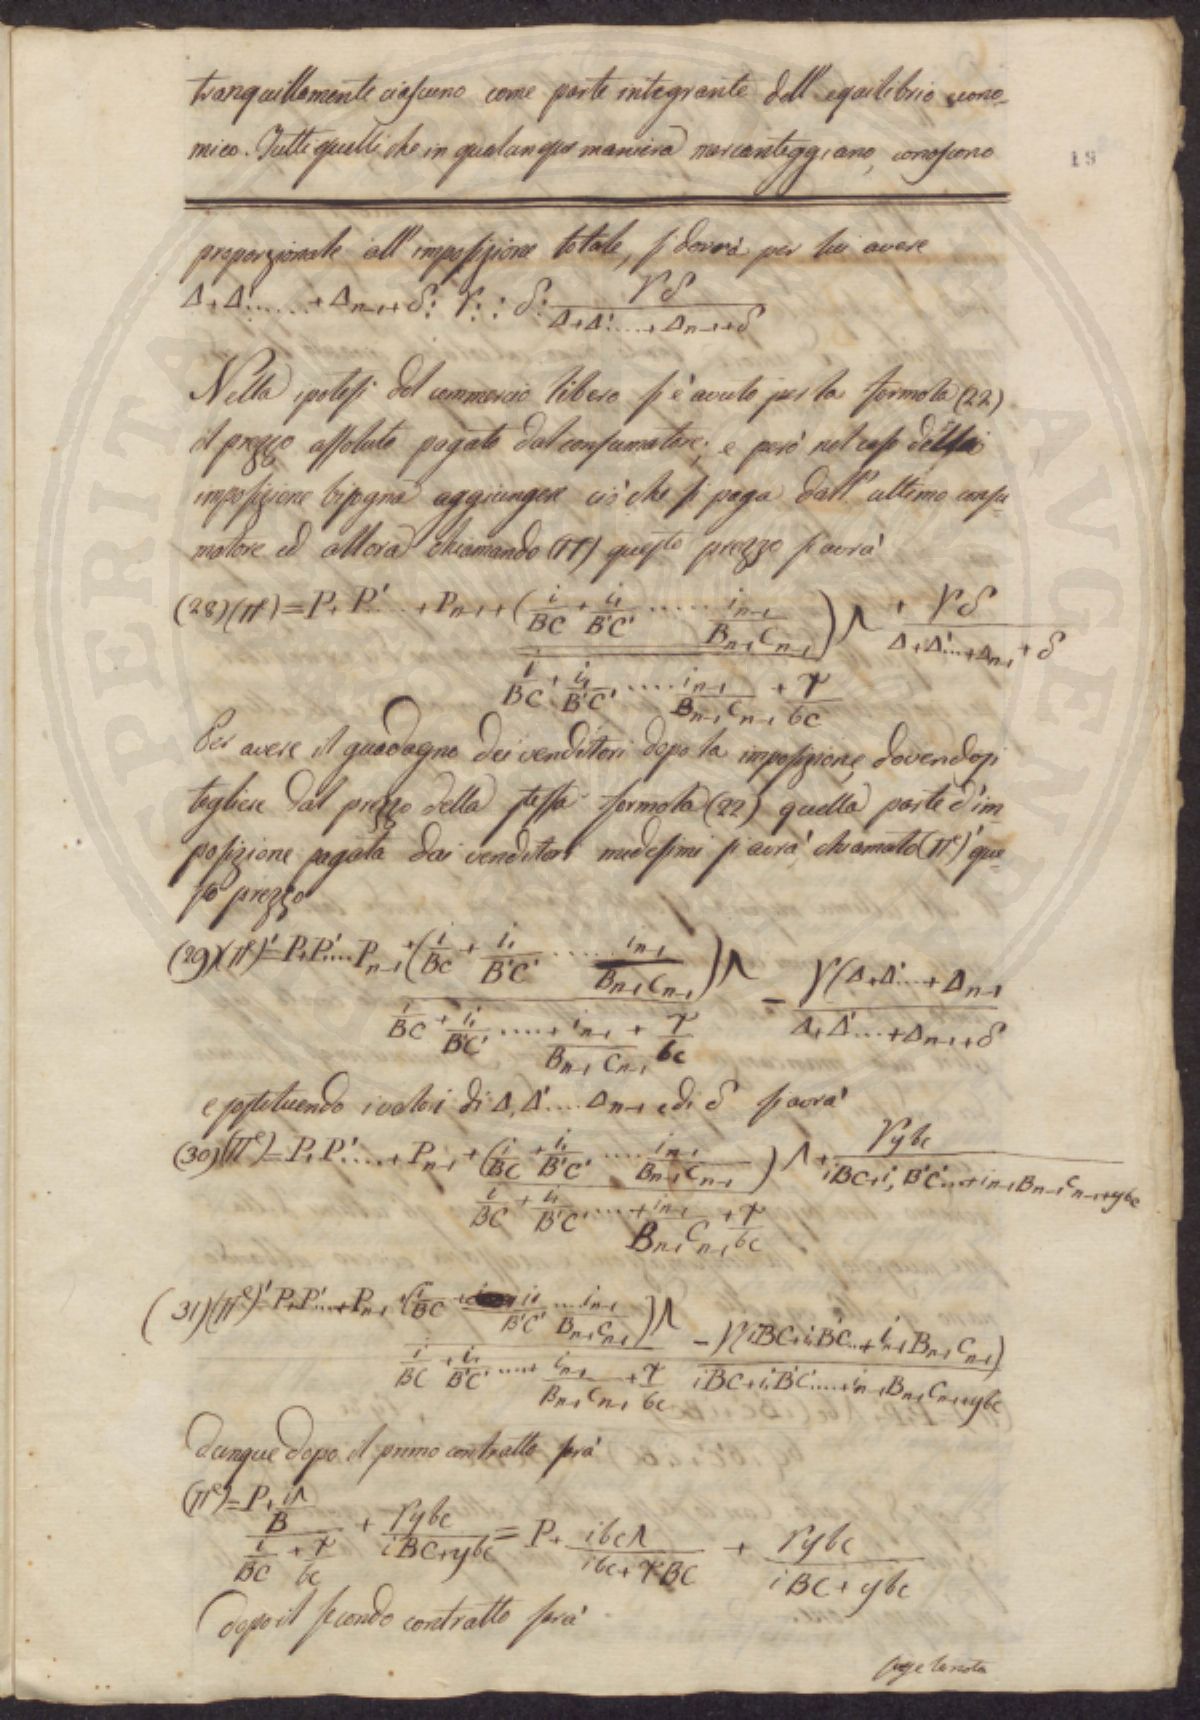 tranquillamente ciascuno come parte integrante dell'equilibrio econo-
mico. Tutti quelli che in qualunque maniera mercanteggiano, conoscono
19
proporzionale all'imposizione totale, si dovrà per lui avere
Δ+Δ'.....+Δn-1+δ : γ :: δ : γδ / Δ+Δ'....+Δn-1+δ
Nella ipotesi del commercio libero si è avuto per la formola (22)
il prezzo assoluto pagato dal consumatore; e però nel caso della
imposizione bisogna aggiungere ciò che si paga dall'ultimo consu-
matore ed allora chiamando (π) questo prezzo si avrà
(28) (π) = P+P'....+Pn-1+(i/BC + i1/B'C' ..... in-1/Bn-1Cn-1)Λ / i/BC + i1/B'C' .... in-1/Bn-1Cn-1 + γ/bc + γδ / Δ+Δ'...+Δn-1+δ
Per avere il guadagno dei venditori dopo la imposizione, dovendosi
togliere dal prezzo della stessa formola (22) quella parte d'im
posizione pagata dai venditori medesimi si avrà chiamato (π)' que-
sto prezzo
(29) (π)' = P+P'....Pn-1+(i/BC + i1/B'C' .... in-1/Bn-1Cn-1)Λ / i/BC + i1/B'C' ....+ in-1/Bn-1Cn-1 + γ/bc − γ(Δ+Δ'...+Δn-1 / Δ+Δ'...+Δn-1+δ
e sostituendo i valori di Δ, Δ'.... Δn-1 e di δ si avrà
(30) (π) = P+P'....+Pn-1+(i/BC + i1/B'C' .... in-1/Bn-1Cn-1)Λ / i/BC + i1/B'C' ....+ in-1/Bn-1Cn-1 + γ/bc + γybc / iBC+i1B'C'...+in-1Bn-1Cn-1+ybc
(31) (π)' = P+P'...+Pn-1+(i/BC + i1/B'C' ... in-1/Bn-1Cn-1)Λ / i/BC + i1/B'C' ....+ in-1/Bn-1Cn-1 + γ/bc − γ(iBC+i1B'C'...+in-1Bn-1Cn-1) / iBC+i1B'C'....+in-1Bn-1Cn-1+ybc
dunque dopo il primo contratto sarà
(π) = P + iΛ/B / i/BC + γ/bc + γybc / iBC+ybc = P + ibcΛ / ibc+γBC + γybc / iBC+ybc
dopo il secondo contratto sarà
segue la nota